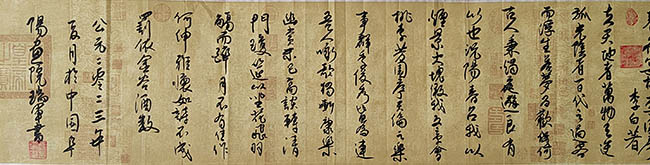 李白著
夫天地者萬物之逆
旅光陰者百代之過客
而浮生若夢為歡幾何
古人秉燭夜遊良有
以也況陽春召我以
煙景大塊假我以文章會
桃李芳園序天倫之樂
事群季俊秀皆為惠連
吾人詠歌獨慚康樂
幽賞未已高談轉清
開瓊筵以坐花飛羽
觴而醉月不有佳作
何伸雅懷如詩不成
罰依金谷酒數
公元二零二三年
夏月於中國阜
陽畫院瑞軍書